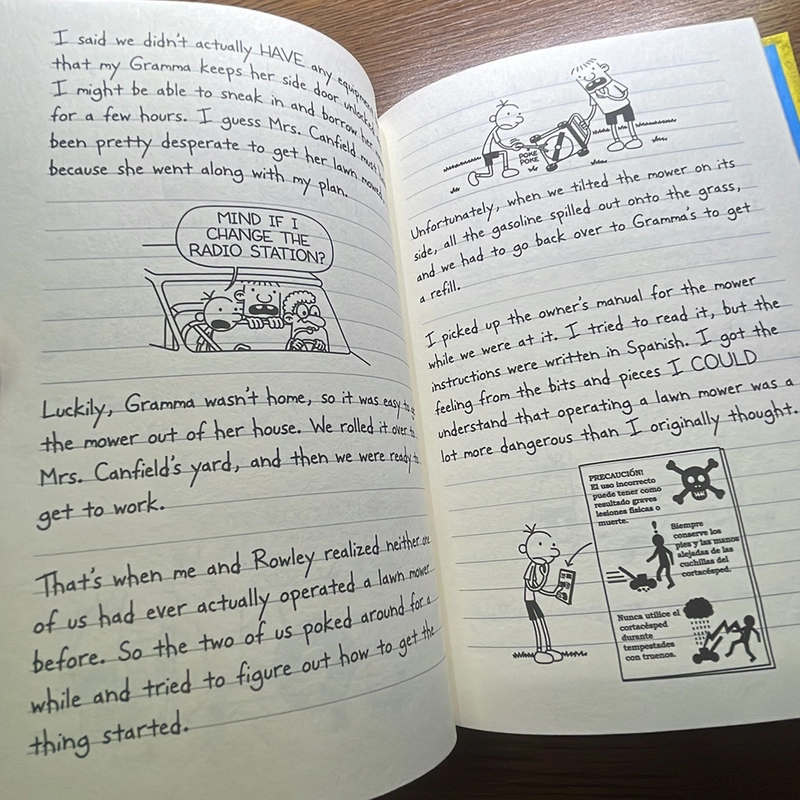 I said we didn't actually HAVE any
that my Gramma keeps her side door unlocked
I might be able to sneak in and borrow her
for a few hours. I guess Mrs. Canfield must
been pretty desperate to get her lawn mowed,
because she went along with my plan.
MIND IF I
CHANGE THE
RADIO STATION?
Luckily, Gramma wasn't home, so it was easy to
the mower out of her house. We rolled it over to
Mrs. Canfield's yard, and then we were ready to
get to work.
That's when me and Rowley realized neither one
of us had ever actually operated a lawn mower
before. So the two of us poked around for a
while and tried to figure out how to get the
thing started.
POKE
POKE
Unfortunately, when we tilted the mower on its
side, all the gasoline spilled out onto the grass,
and we had to go back over to Gramma's to get
a refill.
I picked up the owner's manual for the mower
while we were at it. I tried to read it, but the
instructions were written in Spanish. I got the
feeling from the bits and pieces I COULD
understand that operating a lawn mower was a
lot more dangerous than I originally thought.
PRECAUCIÓN!
El uso incorrecto
puede tener como
resultado graves
lesiones físicas o
muerte.
!
Siempre
conserve los
pies y las manos
alejadas de las
cuchillas del
cortacésped.
Nunca utilice el
cortacésped
durante
tempestades
con truenos.